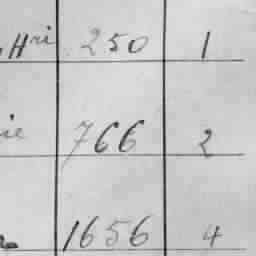 Hri 250 1
ie 766 2
1656 4